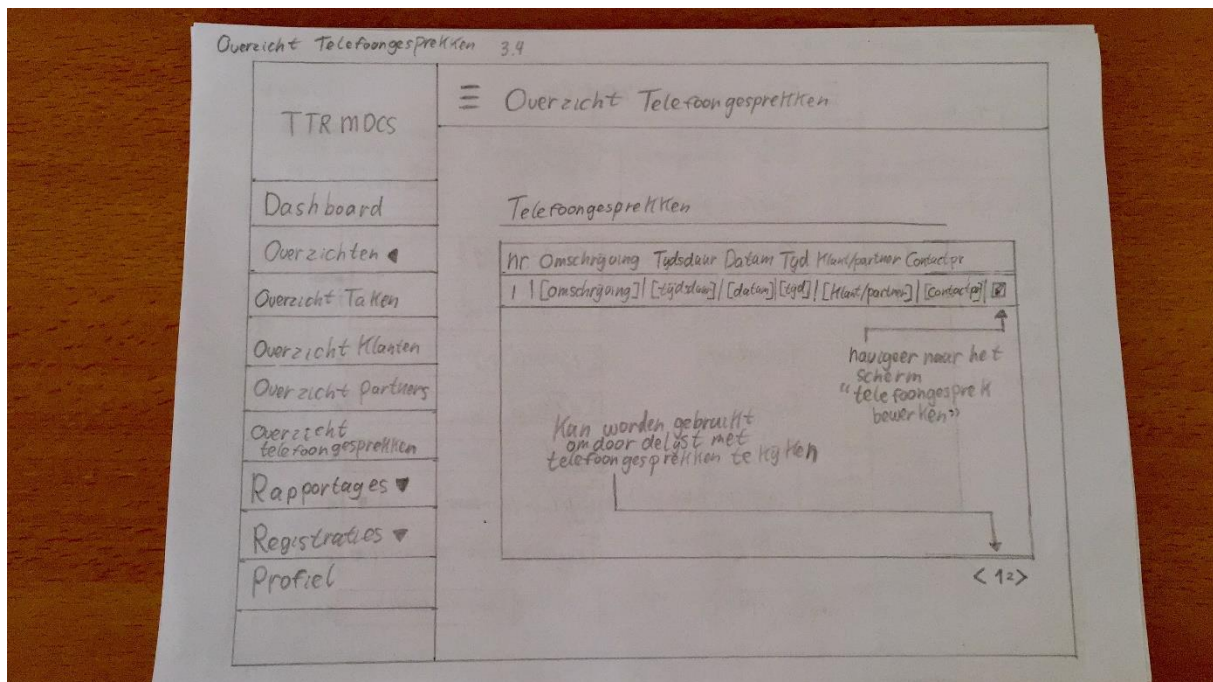 Overzicht Telefoongesprekken 3.4
TTR MDCS
☰ Overzicht Telefoongesprekken
Dashboard
Overzichten ◀
Overzicht Taken
Overzicht Klanten
Overzicht Partners
Overzicht
telefoongesprekken
Rapportages ▼
Registraties ▼
Profiel
Telefoongesprekken
Nr Omschrijving Tijdsduur Datum Tijd Klant/partner Contactpr
1 | [omschrijving] | [tijdsduur] | [datum] | [tijd] | [Klant/partner] | [contactpr] |
navigeer naar het
scherm
"telefoongesprek
bewerken"
Kan worden gebruikt
om door de lijst met
telefoongesprekken te kijken
< 12 >